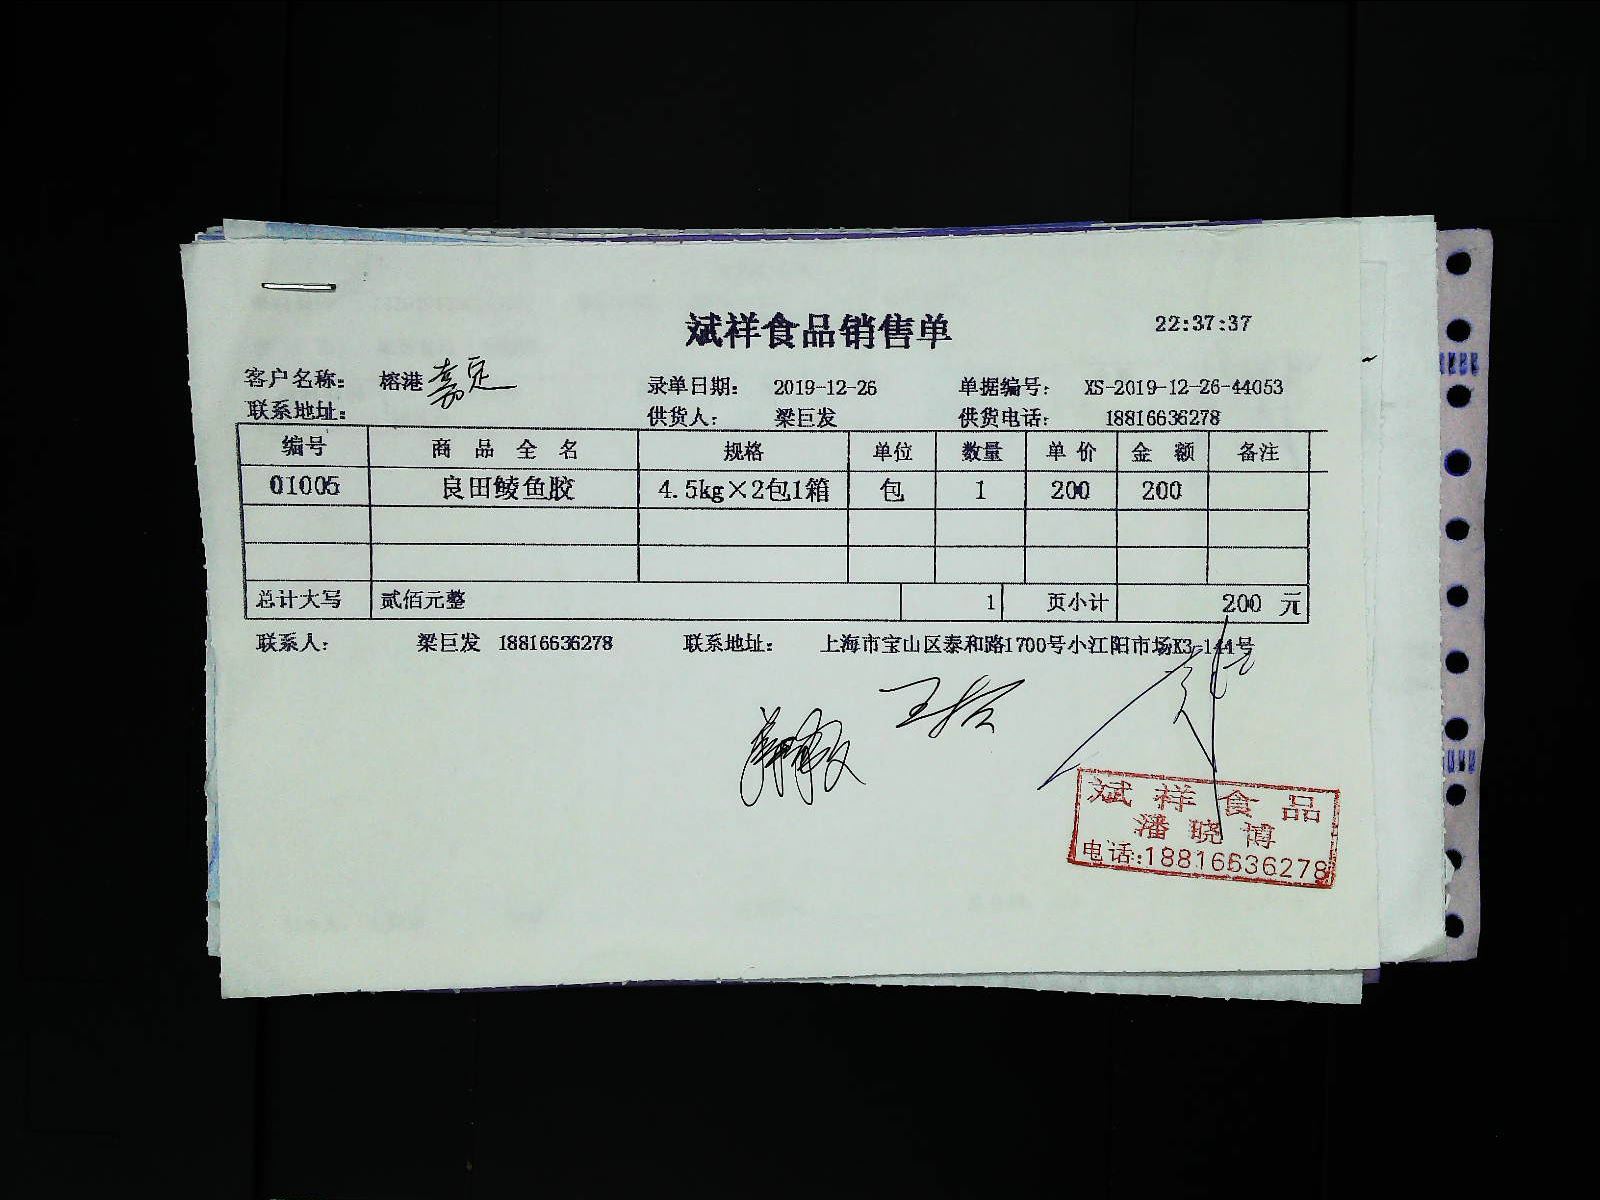 斌祥食品销售单 22:37:37
客户名称： 榕港 嘉定 录单日期： 2019-12-26 单据编号： XS-2019-12-26-44053
联系地址： 供货人： 梁巨发 供货电话： 18816636278
编号 商品全名 规格 单位 数量 单价 金额 备注
01005 良田鲮鱼胶 4.5kg×2包1箱 包 1 200 200
总计大写 贰佰元整 1 页小计 200 元
联系人： 梁巨发 18816636278 联系地址： 上海市宝山区泰和路1700号小江阳市场X3-144号
斌祥食品
潘晓博
电话:18816636278